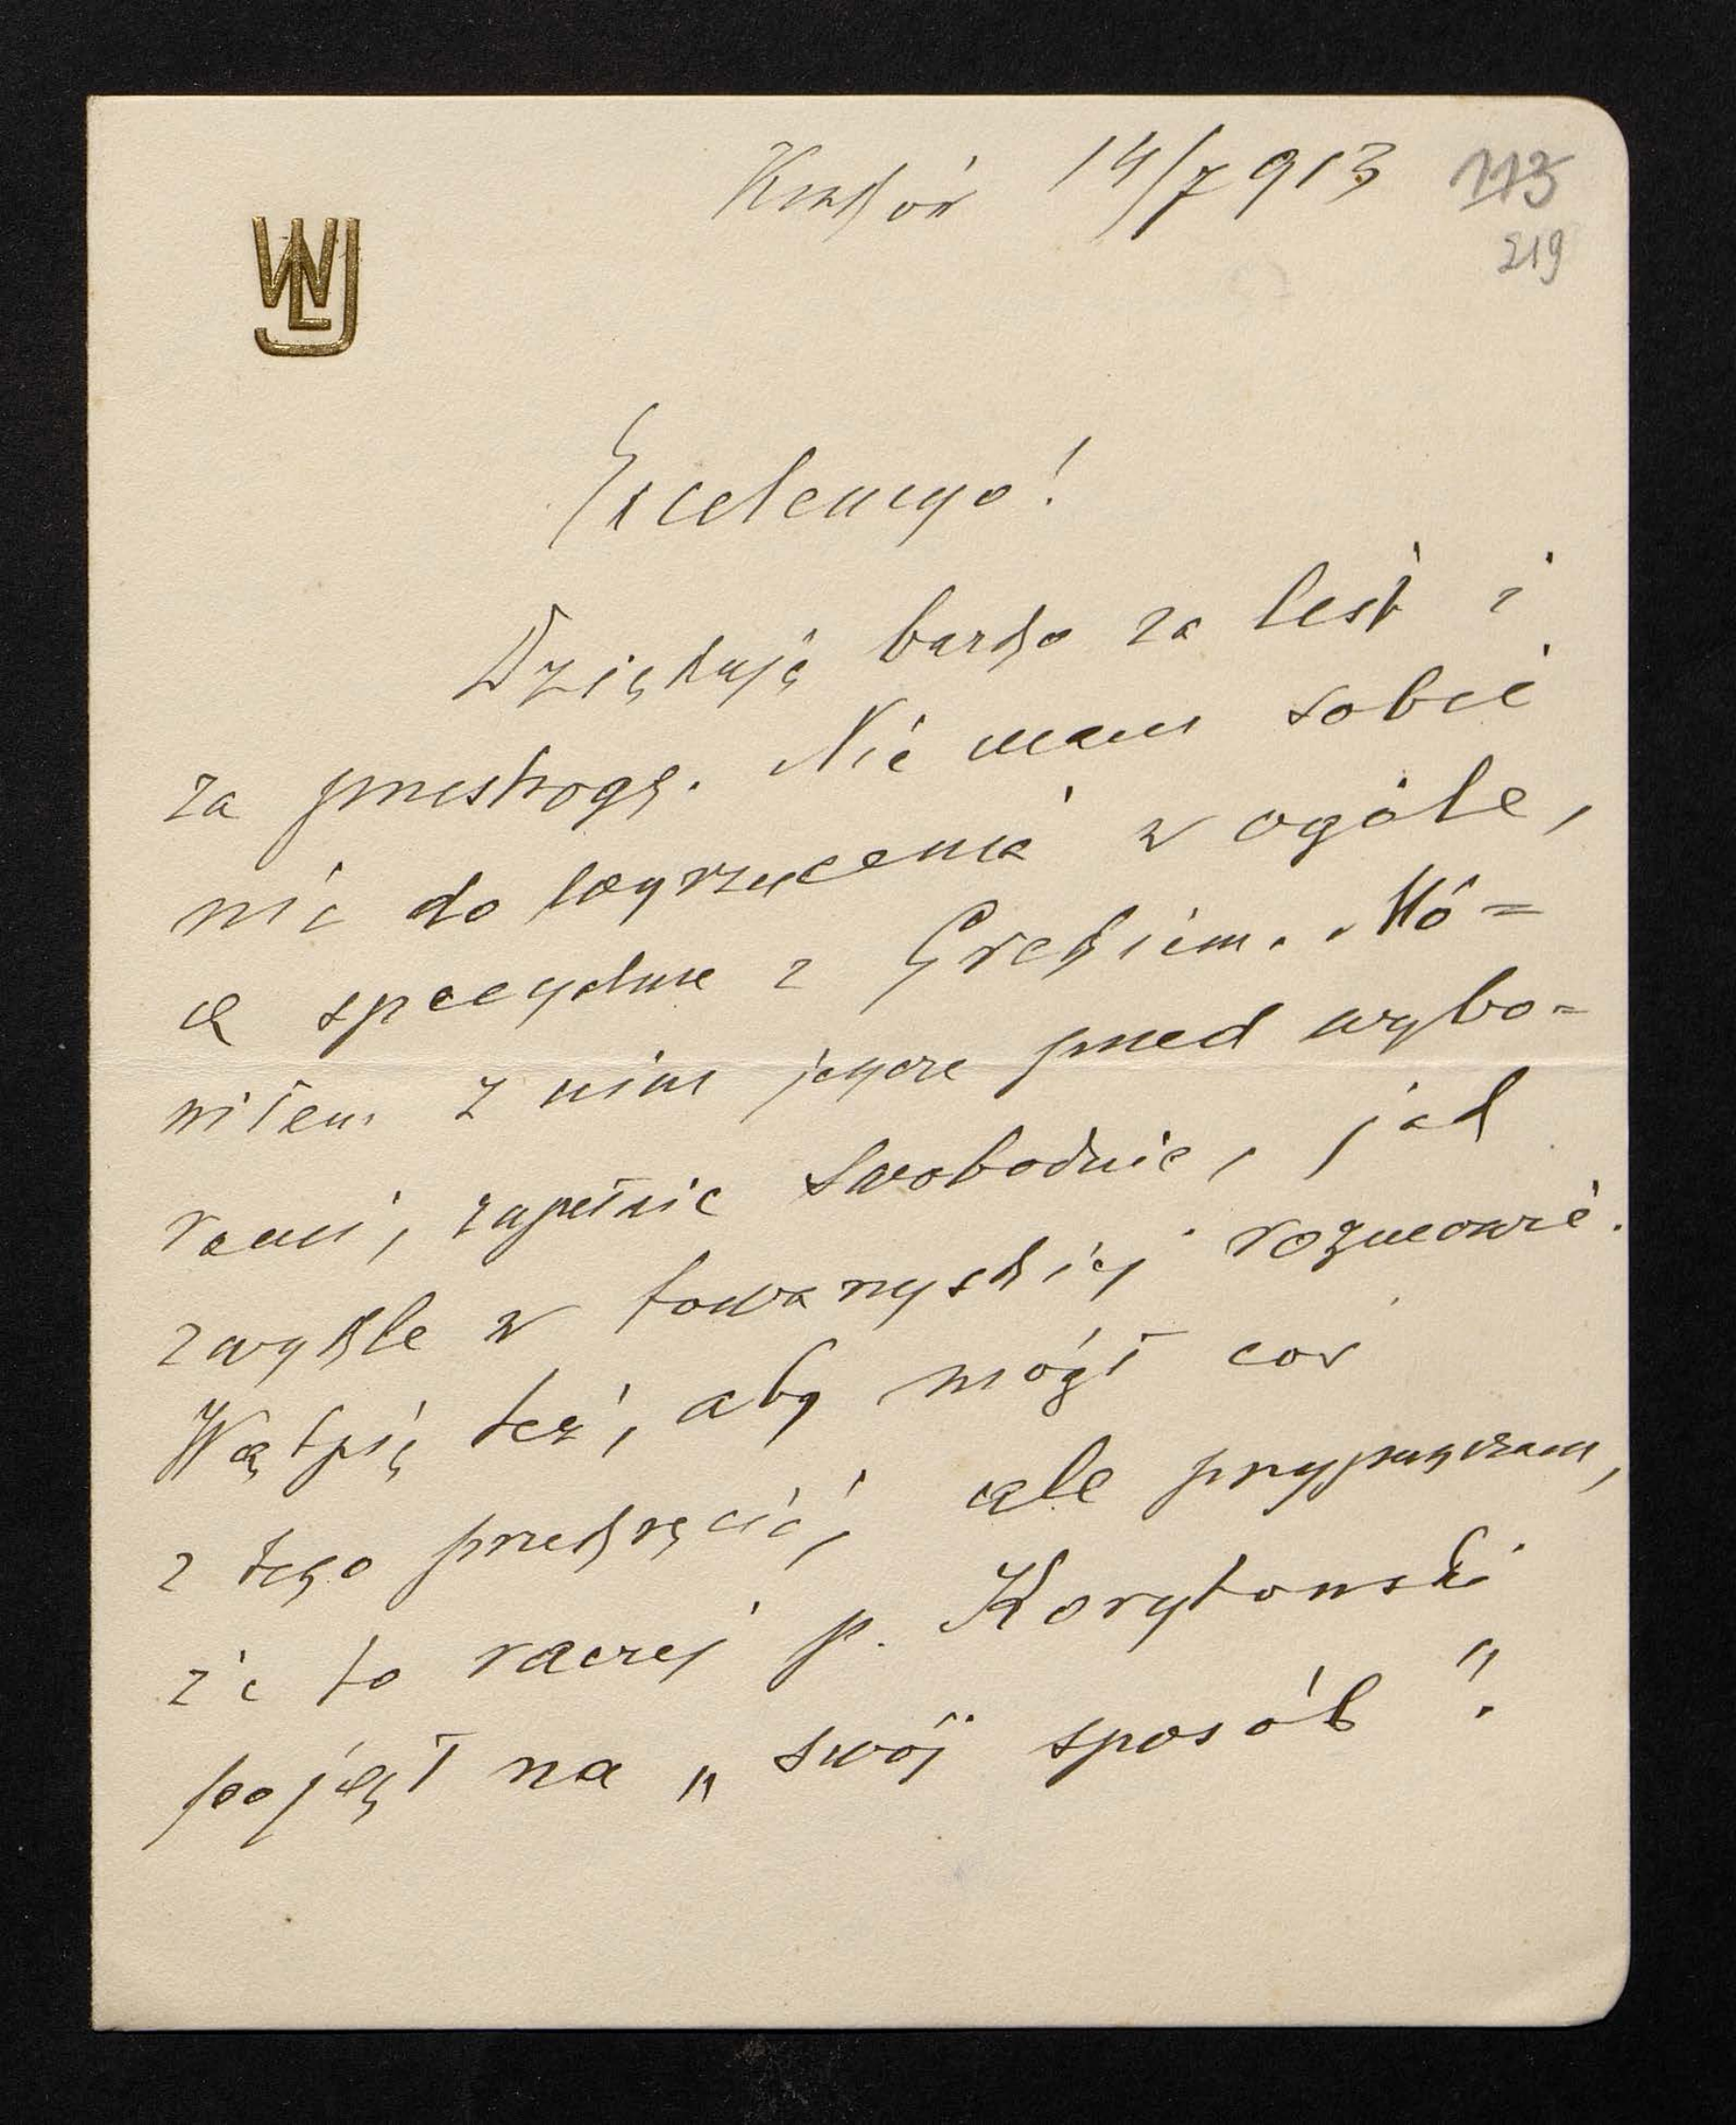 Kraków 14/7 913
113
219
WLJ
Excelencyo!
Dziękuję bardzo za list i
za przestrogę. Nie mam sobie
nic do wyrzucenia w ogóle,
a specyalnie z Grekiem. Mó=
wiłem z nim jeszcze przed wybo=
rami, zupełnie swobodnie, jak
zwykle w towarzyskiej rozmowie.
Wątpię też, aby mógł coś
z tego przekręcić, ale przypuszczam,
że to raczej p. Korytowski
pojął na „swój sposób".